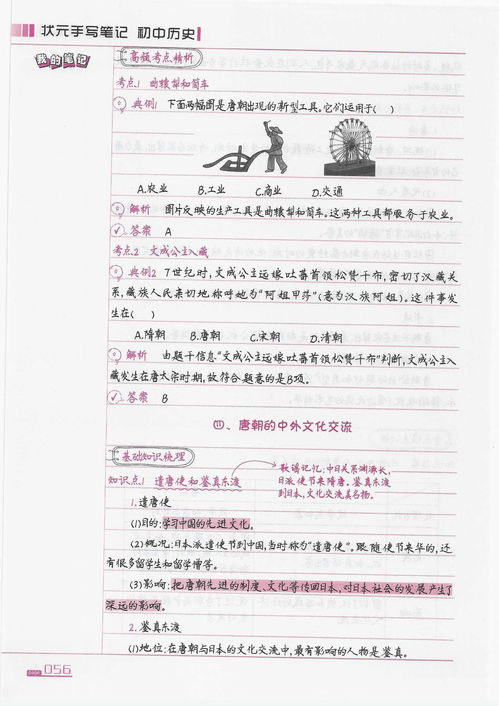 状元手写笔记 初中历史
我的笔记
高频考点精析
考点1 曲辕犁和筒车
典例1 下面两幅图是唐朝出现的新型工具。它们运用于( )
A.农业 B.工业 C.商业 D.交通
解析 图片反映的生产工具是曲辕犁和筒车。这两种工具都服务于农业。
答案 A
考点2 文成公主入藏
典例2 7世纪时,文成公主远嫁吐蕃首领松赞干布,密切了汉藏关
系,藏族人民亲切地称呼她为“阿姐甲莎”(意为汉族阿姐)。这件事发
生在( )
A.隋朝 B.唐朝 C.宋朝 D.清朝
解析 由题干信息“文成公主远嫁吐蕃首领松赞干布”判断,文成公主入
藏发生在唐太宗时期,故符合题意的是B项。
答案 B
四、唐朝的中外文化交流
基础知识梳理
知识点1 遣唐使和鉴真东渡
歌谣记忆:中日关系渊源长,
日派使节来隋唐。鉴真东渡
到日本,文化交流美名扬。
1.遣唐使
(1)目的:学习中国的先进文化。
(2)概况:日本派遣使节到中国,当时称为“遣唐使”。跟随使节来华的,还
有很多留学生和留学僧等。
(3)影响:把唐朝先进的制度、文化等传回日本,对日本社会的发展产生了
深远的影响。
2.鉴真东渡
(1)地位:在唐朝与日本的文化交流中,最有影响的人物是鉴真。
page 056